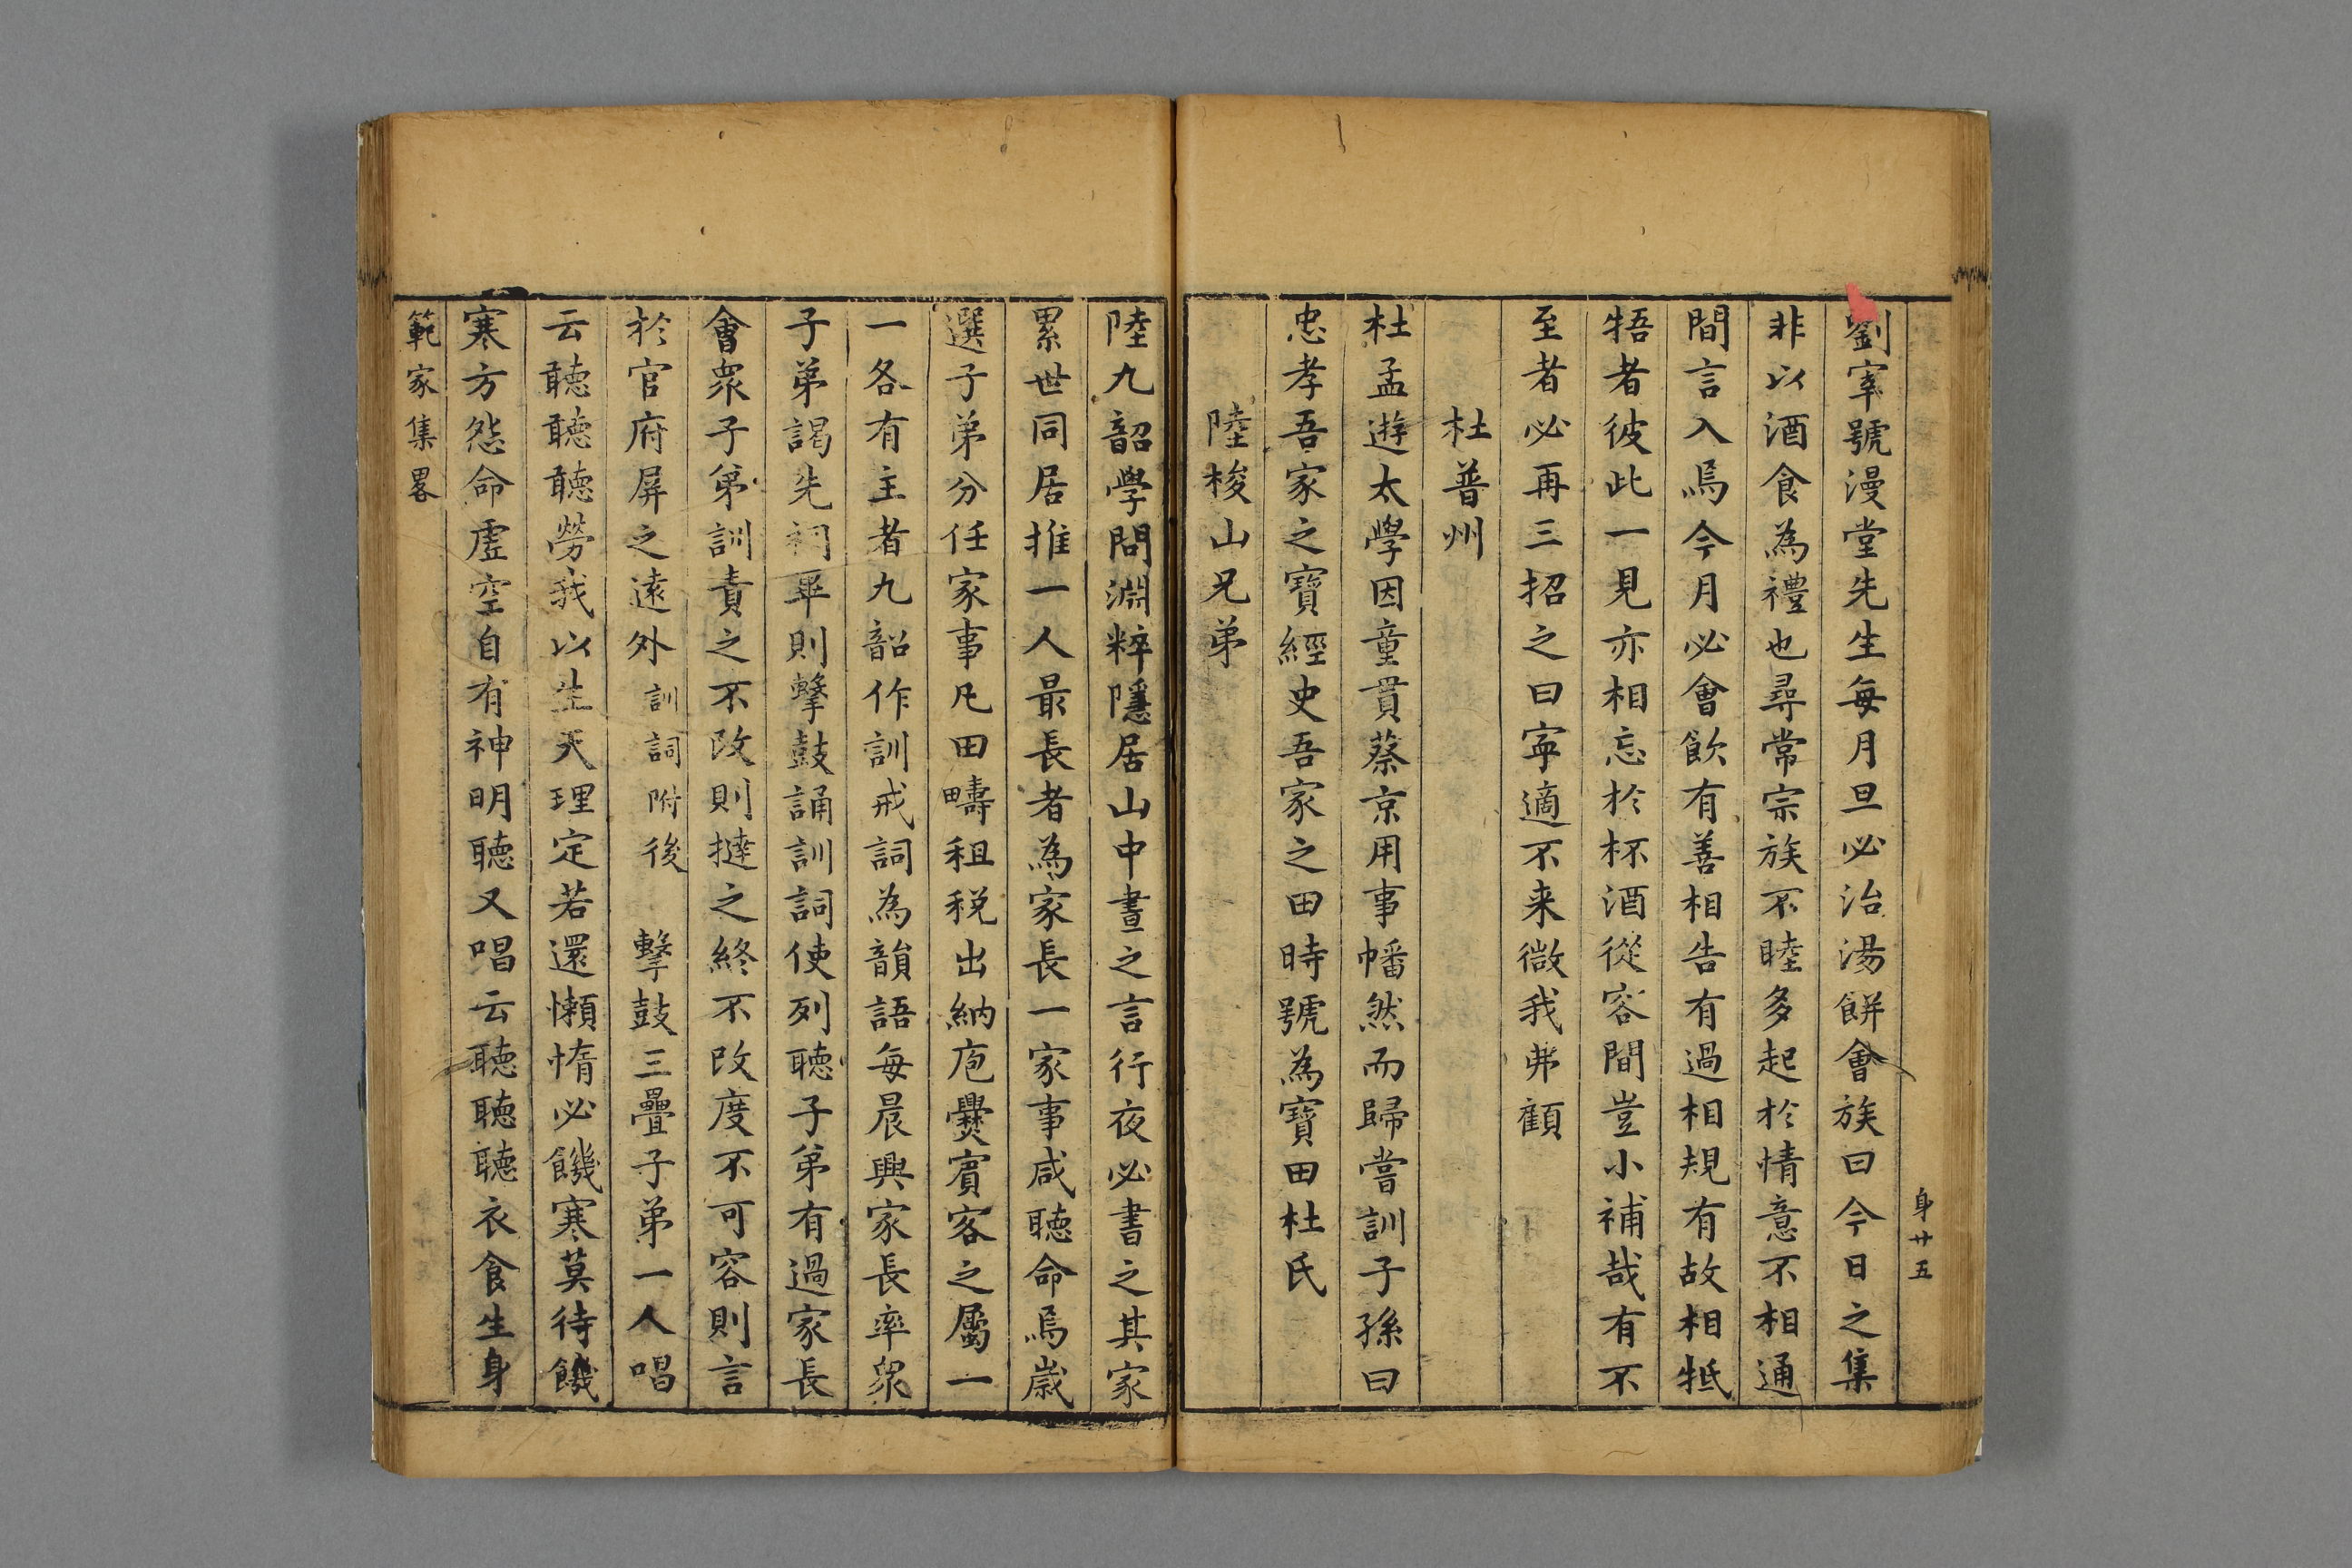 身廿五
劉宰號漫堂先生每月旦必治湯餅會族曰今日之集
非以酒食為禮也尋常宗族不睦多起於情意不相通
間言入焉今月必會飲有善相告有過相規有故相牴
牾者彼此一見亦相忘於杯酒從容間豈小補哉有不
至者必再三招之曰寧適不来微我弗顧
杜普州
杜孟遊太學因童貫蔡京用事幡然而歸嘗訓子孫曰
忠孝吾家之寶經史吾家之田時號為寶田杜氏
陸梭山兄弟
陸九韶學問淵粹隱居山中晝之言行夜必書之其家
累世同居推一人最長者為家長一家事咸聽命焉歲
選子弟分任家事凡田疇租税出納庖爨賓客之屬一
一各有主者九韶作訓戒詞為韻語每晨興家長率衆
子弟謁先祠畢則擊鼓誦訓詞使列聽子弟有過家長
會衆子弟訓責之不改則撻之終不改度不可容則言
於官府屏之遠外訓詞附後 擊鼓三疊子弟一人唱
云聽聽聽勞我以生天理定若還懶惰必饑寒莫待饑
寒方怨命虛空自有神明聽又唱云聽聽聽衣食生身
範家集畧